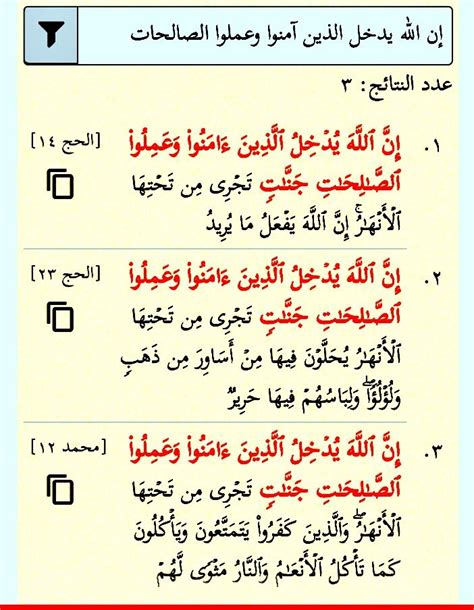 إن الله يدخل الذين آمنوا وعملوا الصالحات
عدد النتائج: ٣
١. إِنَّ ٱللَّهَ يُدْخِلُ ٱلَّذِينَ ءَامَنُوا۟ وَعَمِلُوا۟ [الحج ١٤]
ٱلصَّـٰلِحَـٰتِ جَنَّـٰتٍ تَجْرِى مِن تَحْتِهَا
ٱلْأَنْهَـٰرُ ۚ إِنَّ ٱللَّهَ يَفْعَلُ مَا يُرِيدُ
٢. إِنَّ ٱللَّهَ يُدْخِلُ ٱلَّذِينَ ءَامَنُوا۟ وَعَمِلُوا۟ [الحج ٢٣]
ٱلصَّـٰلِحَـٰتِ جَنَّـٰتٍ تَجْرِى مِن تَحْتِهَا
ٱلْأَنْهَـٰرُ يُحَلَّوْنَ فِيهَا مِنْ أَسَاوِرَ مِن ذَهَبٍ
وَلُؤْلُؤًا ۖ وَلِبَاسُهُمْ فِيهَا حَرِيرٌ
٣. إِنَّ ٱللَّهَ يُدْخِلُ ٱلَّذِينَ ءَامَنُوا۟ وَعَمِلُوا۟ [محمد ١٢]
ٱلصَّـٰلِحَـٰتِ جَنَّـٰتٍ تَجْرِى مِن تَحْتِهَا
ٱلْأَنْهَـٰرُ ۖ وَٱلَّذِينَ كَفَرُوا۟ يَتَمَتَّعُونَ وَيَأْكُلُونَ
كَمَا تَأْكُلُ ٱلْأَنْعَـٰمُ وَٱلنَّارُ مَثْوًى لَّهُمْ